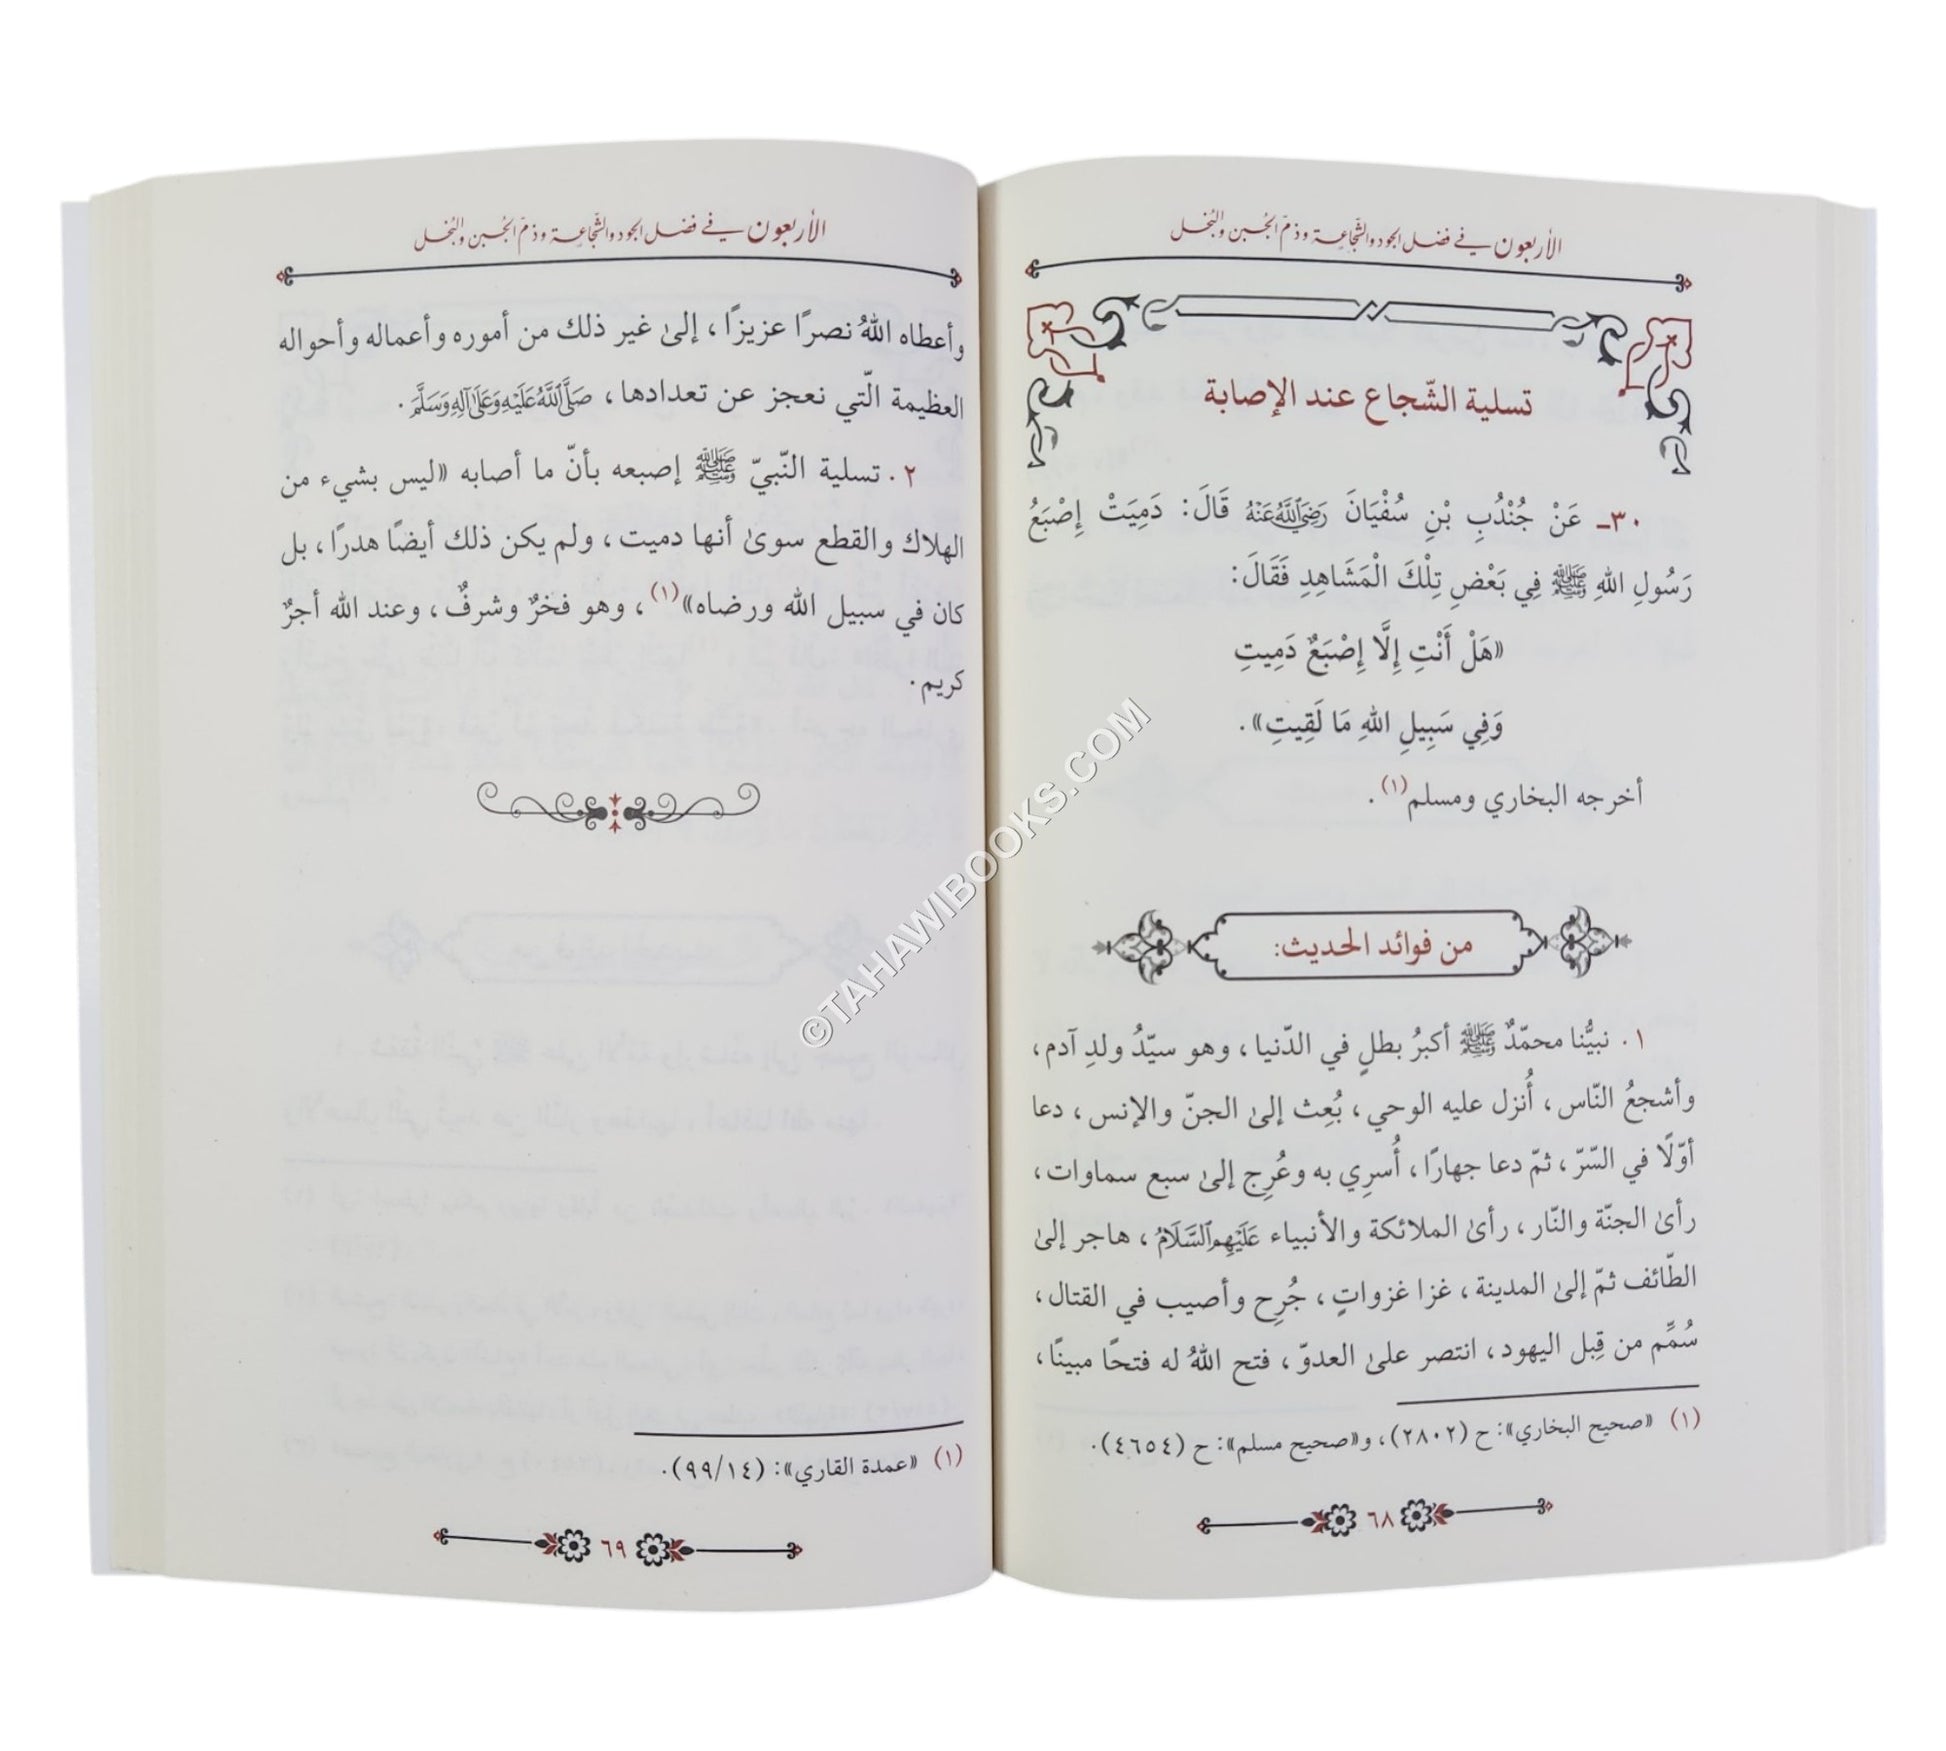 الأربعون في فضل الجود والشّجاعة وذمّ الجُبن والبُخل
تسلية الشّجاع عند الإصابة
٣٠ـ عَنْ جُنْدُبِ بْنِ سُفْيَانَ رَضِيَ اللَّهُ عَنْهُ قَالَ: دَمِيَتْ إِصْبَعُ
رَسُولِ اللهِ ﷺ فِي بَعْضِ تِلْكَ الْمَشَاهِدِ فَقَالَ:
«هَلْ أَنْتِ إِلَّا إِصْبَعٌ دَمِيتِ
وَفِي سَبِيلِ اللهِ مَا لَقِيتِ».
أخرجه البخاري ومسلم(١).
من فوائد الحديث:
١. نبيُّنا محمّدٌ ﷺ أكبرُ بطلٍ في الدّنيا، وهو سيّدُ ولدِ آدم،
وأشجعُ النّاس، أُنزل عليه الوحي، بُعِث إلىٰ الجنّ والإنس، دعا
أوّلًا في السّرّ، ثمّ دعا جهارًا، أُسرِي به وعُرِج إلىٰ سبع سماوات،
رأىٰ الجنّة والنّار، رأىٰ الملائكة والأنبياء عَلَيْهِم السَّلَامُ، هاجر إلىٰ
الطّائف ثمّ إلىٰ المدينة، غزا غزواتٍ، جُرِح وأصيب في القتال،
سُمِّم من قِبل اليهود، انتصر علىٰ العدوّ، فتح اللهُ له فتحًا مبينًا،
(١) «صحيح البخاري»: ح (٢٨٠٢)، و«صحيح مسلم»: ح (٤٦٥٤).
٦٨
الأربعون في فضل الجود والشّجاعة وذمّ الجُبن والبُخل
وأعطاه اللهُ نصرًا عزيزًا، إلىٰ غير ذلك من أموره وأعماله وأحواله
العظيمة الّتي نعجز عن تعدادها، صَلَّى اللَّهُ عَلَيْهِ وَعَلَىٰ آلِهِ وَسَلَّمَ.
٢. تسلية النّبيّ ﷺ إصبعه بأنّ ما أصابه «ليس بشيء من
الهلاك والقطع سوىٰ أنها دميت، ولم يكن ذلك أيضًا هدرًا، بل
كان في سبيل الله ورضاه»(١)، وهو فخرٌ وشرفٌ، وعند الله أجرٌ
كريم.
(١) «عمدة القاري»: (١٤/٩٩).
٦٩
©TAHAWIBOOKS.COM